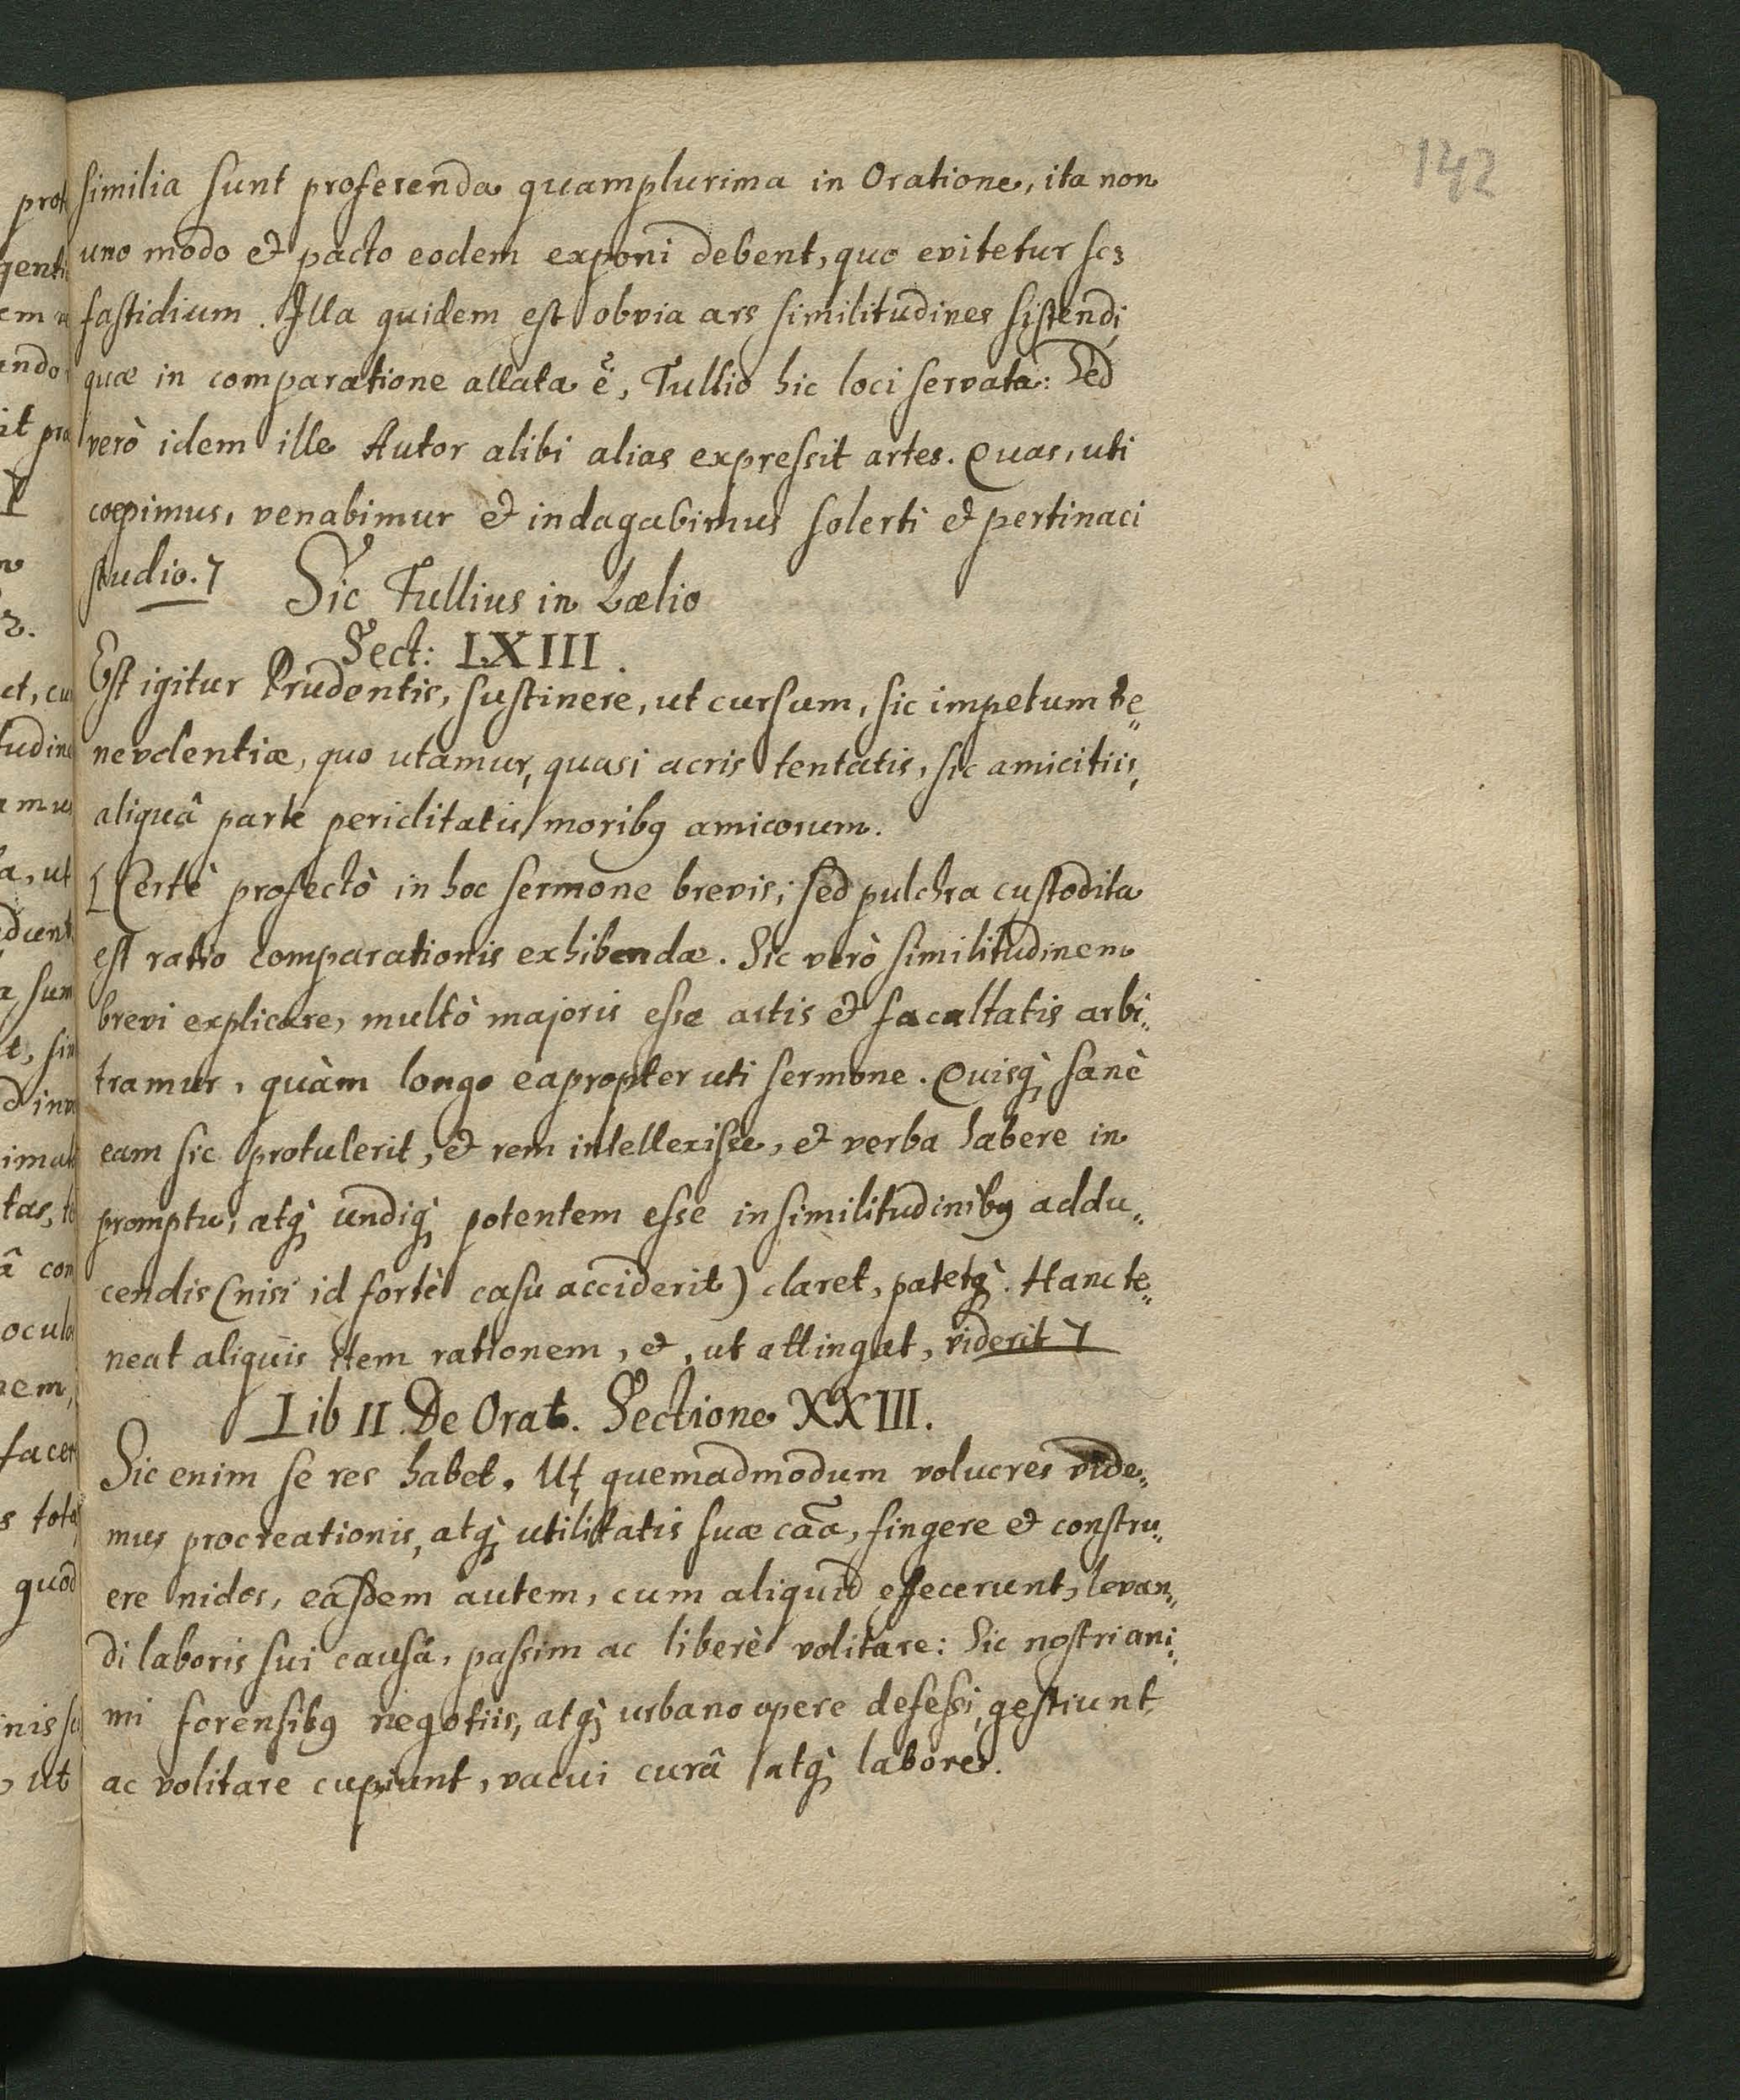 142
similia sunt proferenda quamplurima in Oratione, ita non
uno modo & pacto eodem exponi debent, quo evitetur scꝫ
fastidium. Illa quidem est obvia ars similitudines sistendi,
quæ in comparatione allata ẽ, Tullio hic loci servata: Sed
verò idem ille Autor alibi alias expressit artes. Quas, uti
cœpimus, venabimur & indagabimus solerti & pertinaci
studio. ⁊
Sic Tullius in Lælio
Sect: LXIII.
Est igitur Prudentis, sustinere, ut cursum, sic impetum be„
nevolentiæ, quo utamur, quasi acris tentatis, sic amicitiis,
aliquâ parte periclitatis moribꝯ amicorum.
[Certè profectò in hoc sermone brevis; sed pulchra custodita
est ratio comparationis exhibendæ. Sic verò similitudinem
brevi explicare, multò majoris esse artis & facultatis arbi„
tramur, quàm longo eapropter uti sermone. Quisq; sanè
eam sic protulerit, & rem intellexisse, & verba habere in
promptu, atq; undiq; potentem esse in similitudinibꝯ addu„
cendis (nisi id fortè casu acciderit) claret, patetq;. Hanc te„
neat aliquis item rationem, &, ut attingat, viderit ⁊
Lib II. De Orat. Sectione XXIII.
Sic enim se res habet. Ut quemadmodum volucres vide„
mus procreationis, atq; utilitatis suæ caã, fingere & constru„
ere nidos, easdem autem, cum aliquid effecerunt, levan„
di laboris sui causâ, passim ac liberè volitare: Sic nostri ani„
mi forensibꝯ negotiis, atq; urbano opere defessi, gestiunt
ac volitare cupiunt, vacui curâ atq; labore.